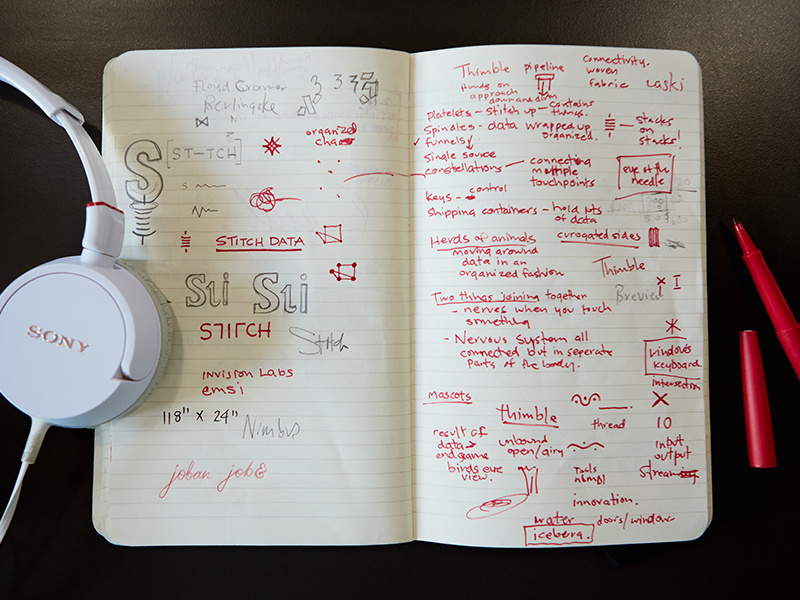 SONY
Floyd Cramer
Berlingske
3 3 3
S
[ST-TCH]
organized
chaos
S
STITCH DATA
Sti Sti
STITCH
Stitch
invision Labs
emsi
118" x 24"
Nimbus
joban job
Thimble
pipeline
connectivity.
woven
fabric
Laski
Hands on
approach
Platelets - stitch up - contains
things.
Spindles - data wrapped up
organized.
stacks
on
stacks!
funnels
single source
constellations - connecting
multiple
touchpoints
eye of the
needle
keys - control
shipping containers - hold lots
of data
Herds of animals
curogated sides
moving around
data in an
organized fashion
Thimble
Two things joining together
Brevier
- nerves when you touch
something
- Nervous System all
connected but in seperate
parts of the body.
windows
keyboard
intersection
mascots
Thimble
thread
10
result of
data →
endgame
unbound
open/airy
input
output
birds eye
view.
Tools
stream
innovation.
water
doors/window
iceberg.